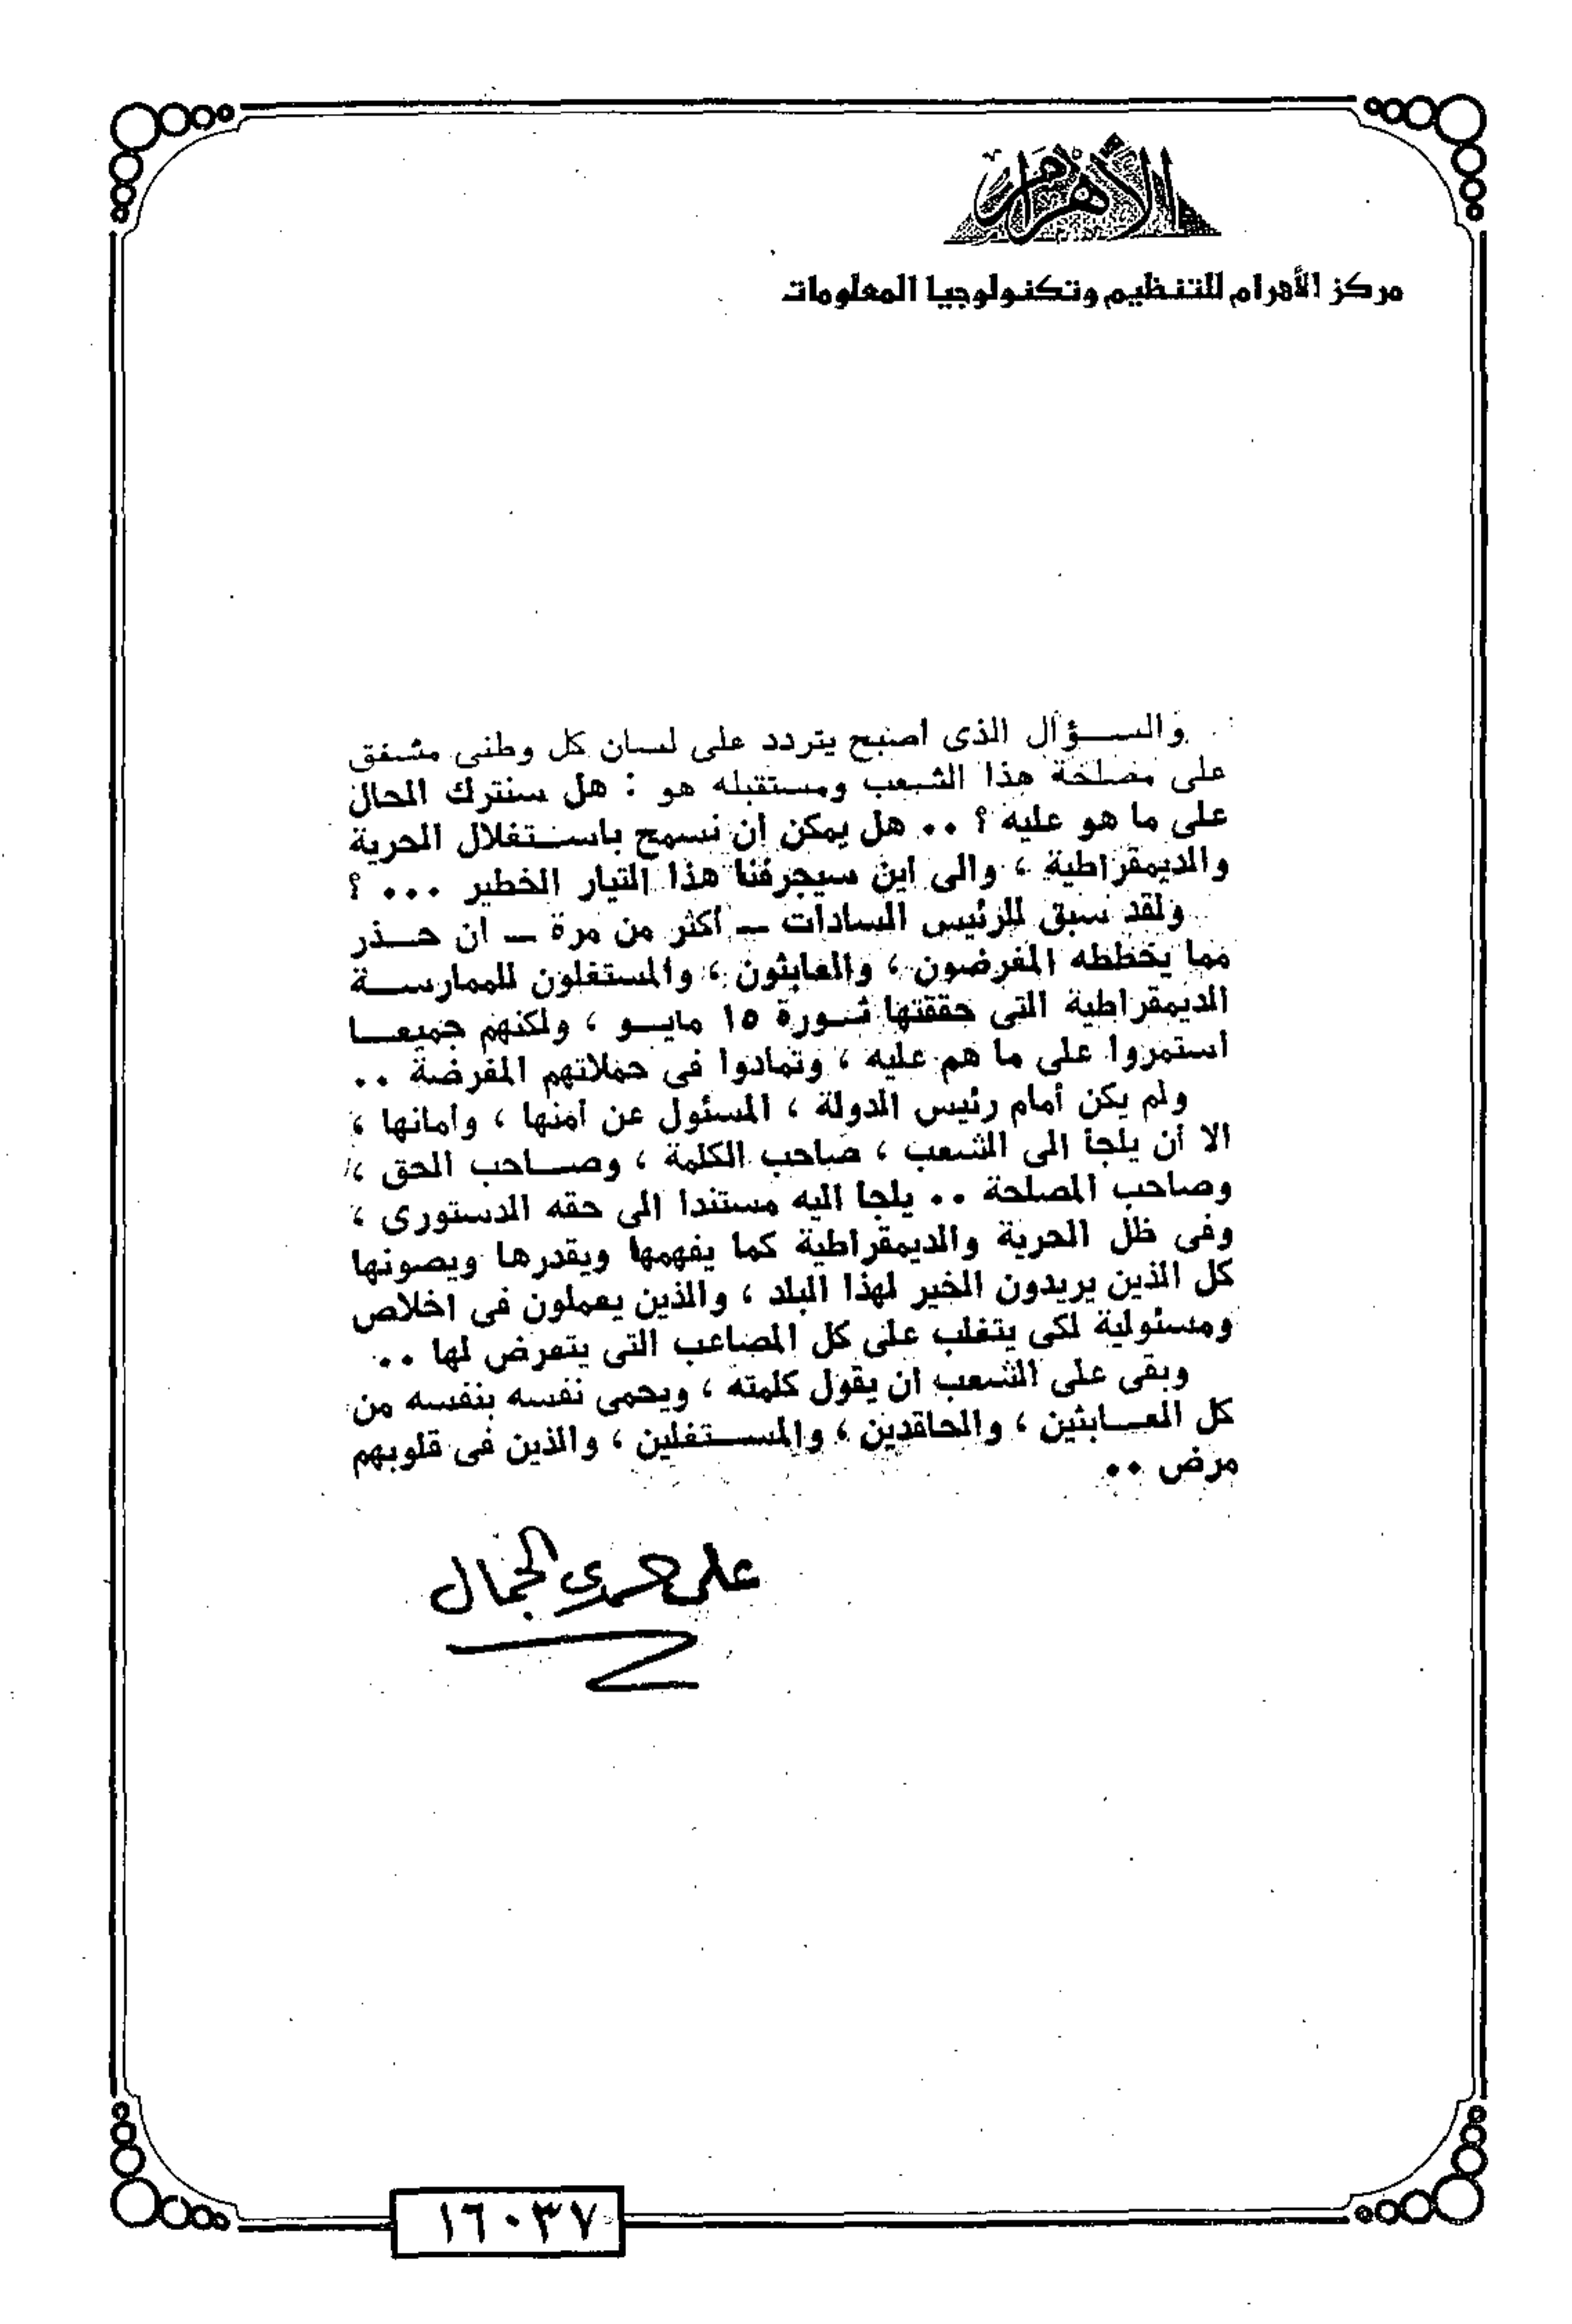 الأهرام
مركز الأهرام للتنظيم وتكنولوجيا المعلومات
والســؤال الذى اصبح يتردد على لسان كل وطنى مشفق
على مصلحة هذا الشعب ومستقبله هو : هل سنترك الحال
على ما هو عليه ؟ .. هل يمكن ان نسمح باستغلال الحرية
والديمقراطية ، والى اين سيجرفنا هذا التيار الخطير ... ؟
ولقد سبق للرئيس السادات ــ اكثر من مرة ــ ان حــذر
مما يخططه المغرضون ، والعابثون ، والمستغلون للممارســة
الديمقراطية التى حققتها ثــورة ١٥ مايــو ، ولكنهم جميعــا
استمروا على ما هم عليه ، وتمادوا فى حملاتهم المغرضة ..
ولم يكن أمام رئيس الدولة ، المسئول عن امنها ، وأمانها ،
الا أن يلجأ الى الشعب ، صاحب الكلمة ، وصــاحب الحق ،
وصاحب المصلحة .. يلجا اليه مستندا الى حقه الدستورى ،
وفى ظل الحرية والديمقراطية كما يفهمها ويقدرها ويصونها
كل الذين يريدون الخير لهذا البلد ، والذين يعملون فى اخلاص
ومسئولية لكى يتغلب على كل المصاعب التى يتعرض لها ..
وبقى على الشعب ان يقول كلمته ، ويحمى نفسه بنفسه من
كل العــابثين ، والحاقدين ، والمســتغلين ، والذين فى قلوبهم
مرض ..
على حمدى الجمال
١٦٠٣٧